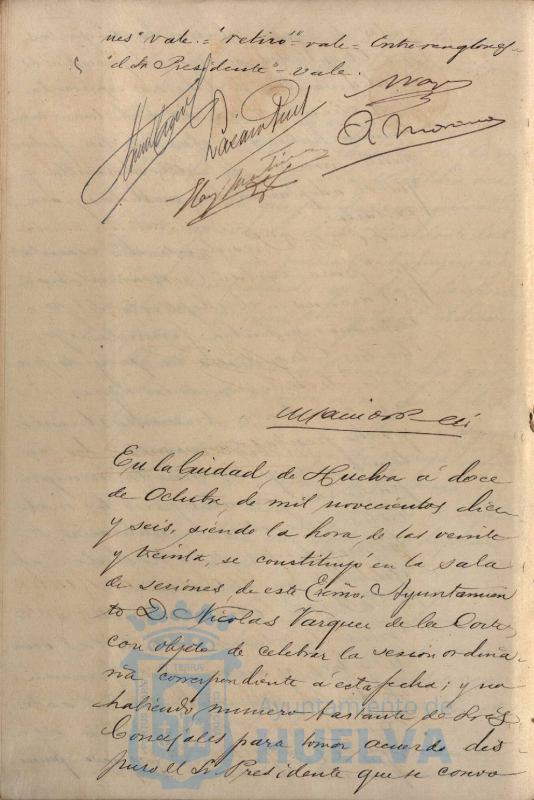 nes" vale.="retiró"-vale=Entrerenglones-
"el Sr Presidente"-vale.
Lázaro Ruiz
A. Moreno
En la Ciudad de Huelva á doce
de Octubre de mil novecientos diez
y seis, siendo la hora de las veinte
y treinta, se constituyó en la sala
de sesiones de este Excmo. Ayuntamien
to D. Nicolas Vazquez de la Corte,
con objeto de celebrar la sesión ordina-
ria correspondiente á esta fecha; y no
habiendo numero bastante de Sres
Concejales para tomar acuerdo dis-
puso el Sr. Presidente que se convo
Ayuntamiento de
HUELVA